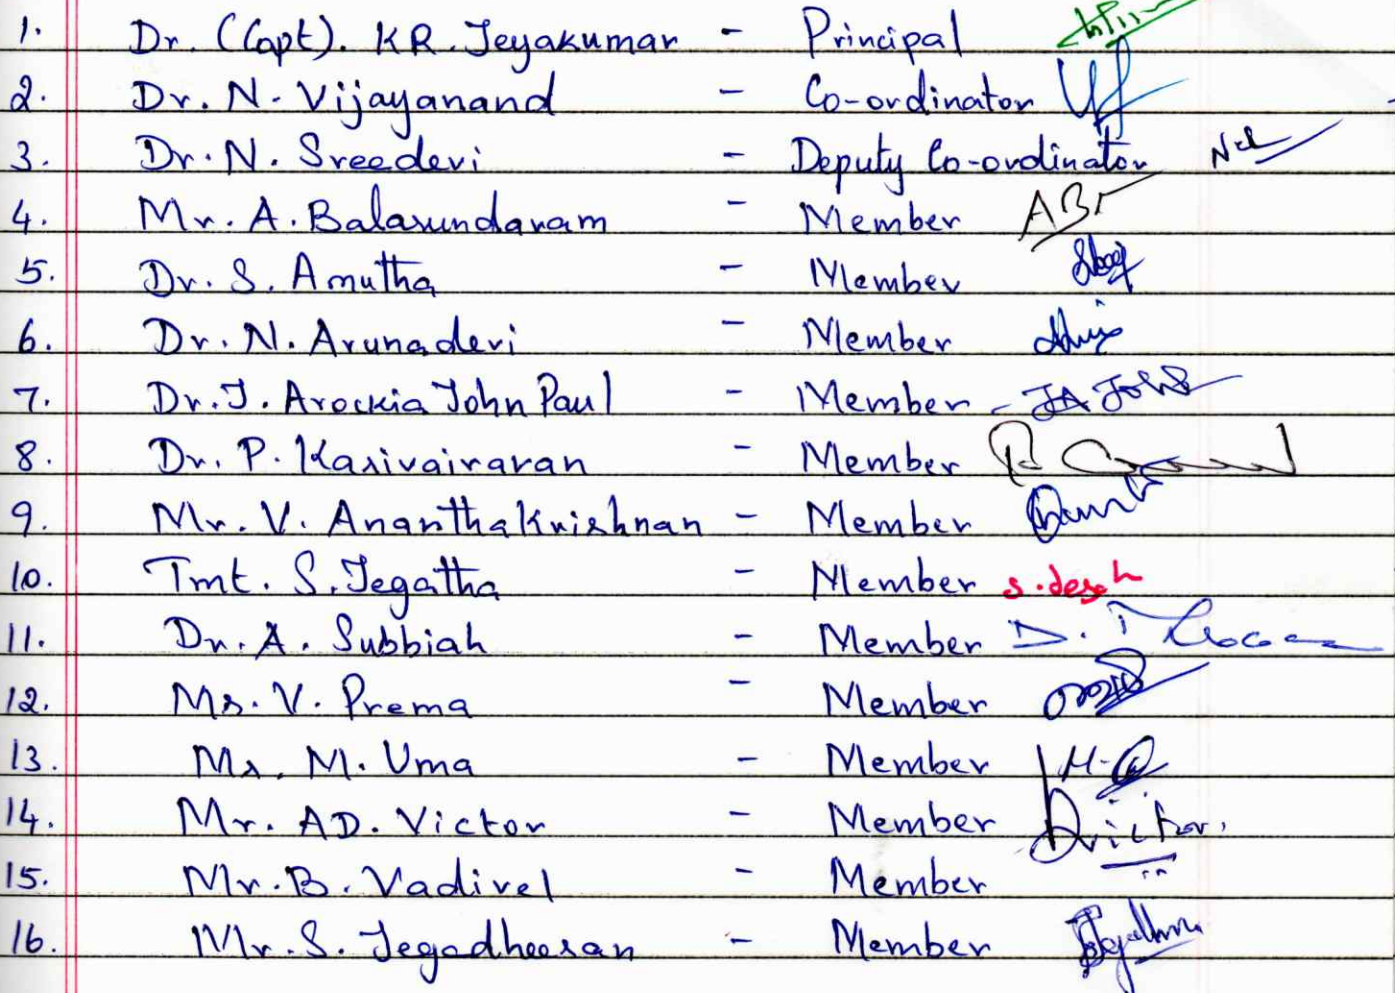 1. Dr. (Capt). KR. Jeyakumar - Principal
2. Dr. N. Vijayanand - Co-ordinator
3. Dr. N. Sreedevi - Deputy Co-ordinator
4. Mr. A. Balasundaram - Member
5. Dr. S. Amutha - Member
6. Dr. N. Arunadevi - Member
7. Dr. J. Arockia John Paul - Member - JA John
8. Dr. P. Kasivairavan - Member
9. Mr. V. Ananthakrishnan - Member
10. Tmt. S. Jegatha - Member
11. Dr. A. Subbiah - Member
12. Ms. V. Prema - Member
13. Ms. M. Uma - Member
14. Mr. AD. Victor - Member
15. Mr. B. Vadivel - Member
16. Mr. S. Jegadheesan - Member